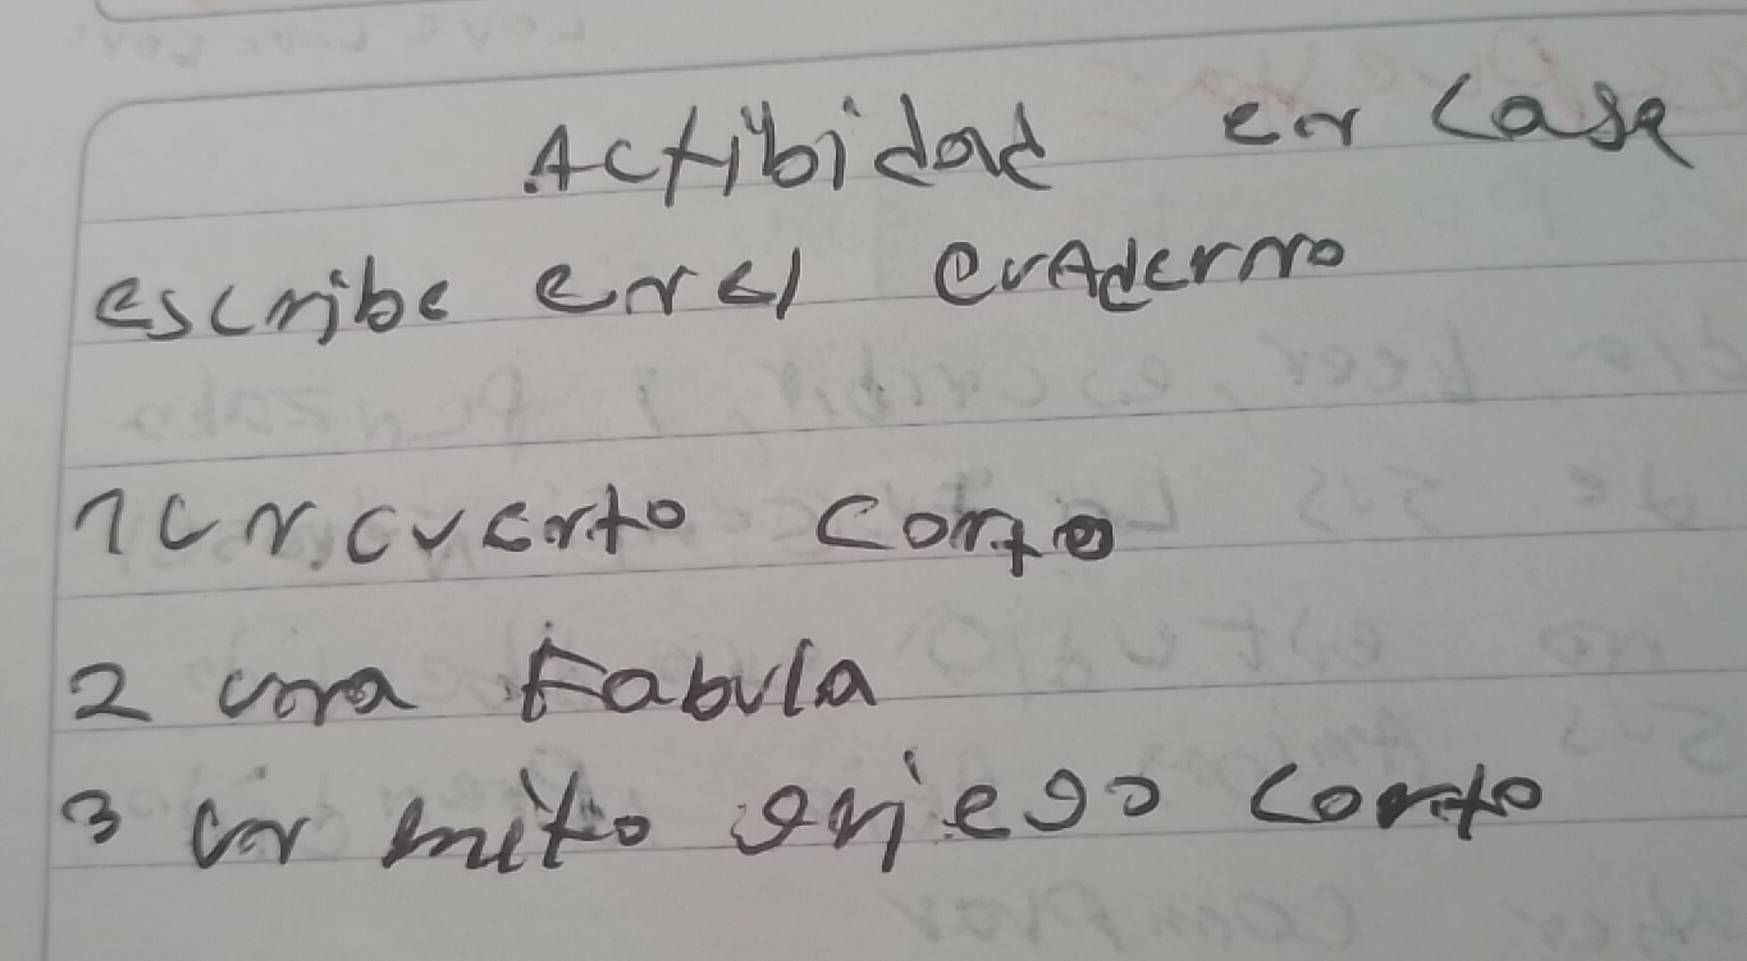 Actibidad en casa
escribe en el cuaderno
1 un cuento corto
2 una Fabula
3 un mito griego corto